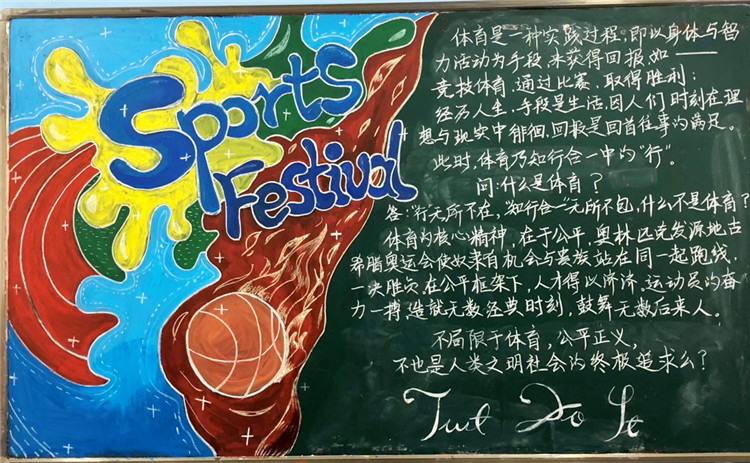 Sports
Festival
体育是一种实践过程,即以身体与智
力活动为手段,来获得回报.如——
竞技体育,通过比赛,取得胜利;
经历人生,手段是生活,因人们时刻在理
想与现实中徘徊,回报是回首往事的满足。
此时,体育乃知行合一中的"行"。
问:什么是体育?
答:"行无所不在,"知行合一"无所不包,什么不是体育?
体育的核心精神,在于公平,奥林匹克发源地古
希腊奥运会使奴隶有机会与贵族站在同一起跑线,
一决胜负.在公平框架下,人才得以济济.运动员的奋
力一搏,造就无数经典时刻,鼓舞无数后来人。
不局限于体育,公平正义,
不也是人类文明社会的终极追求么?
Do